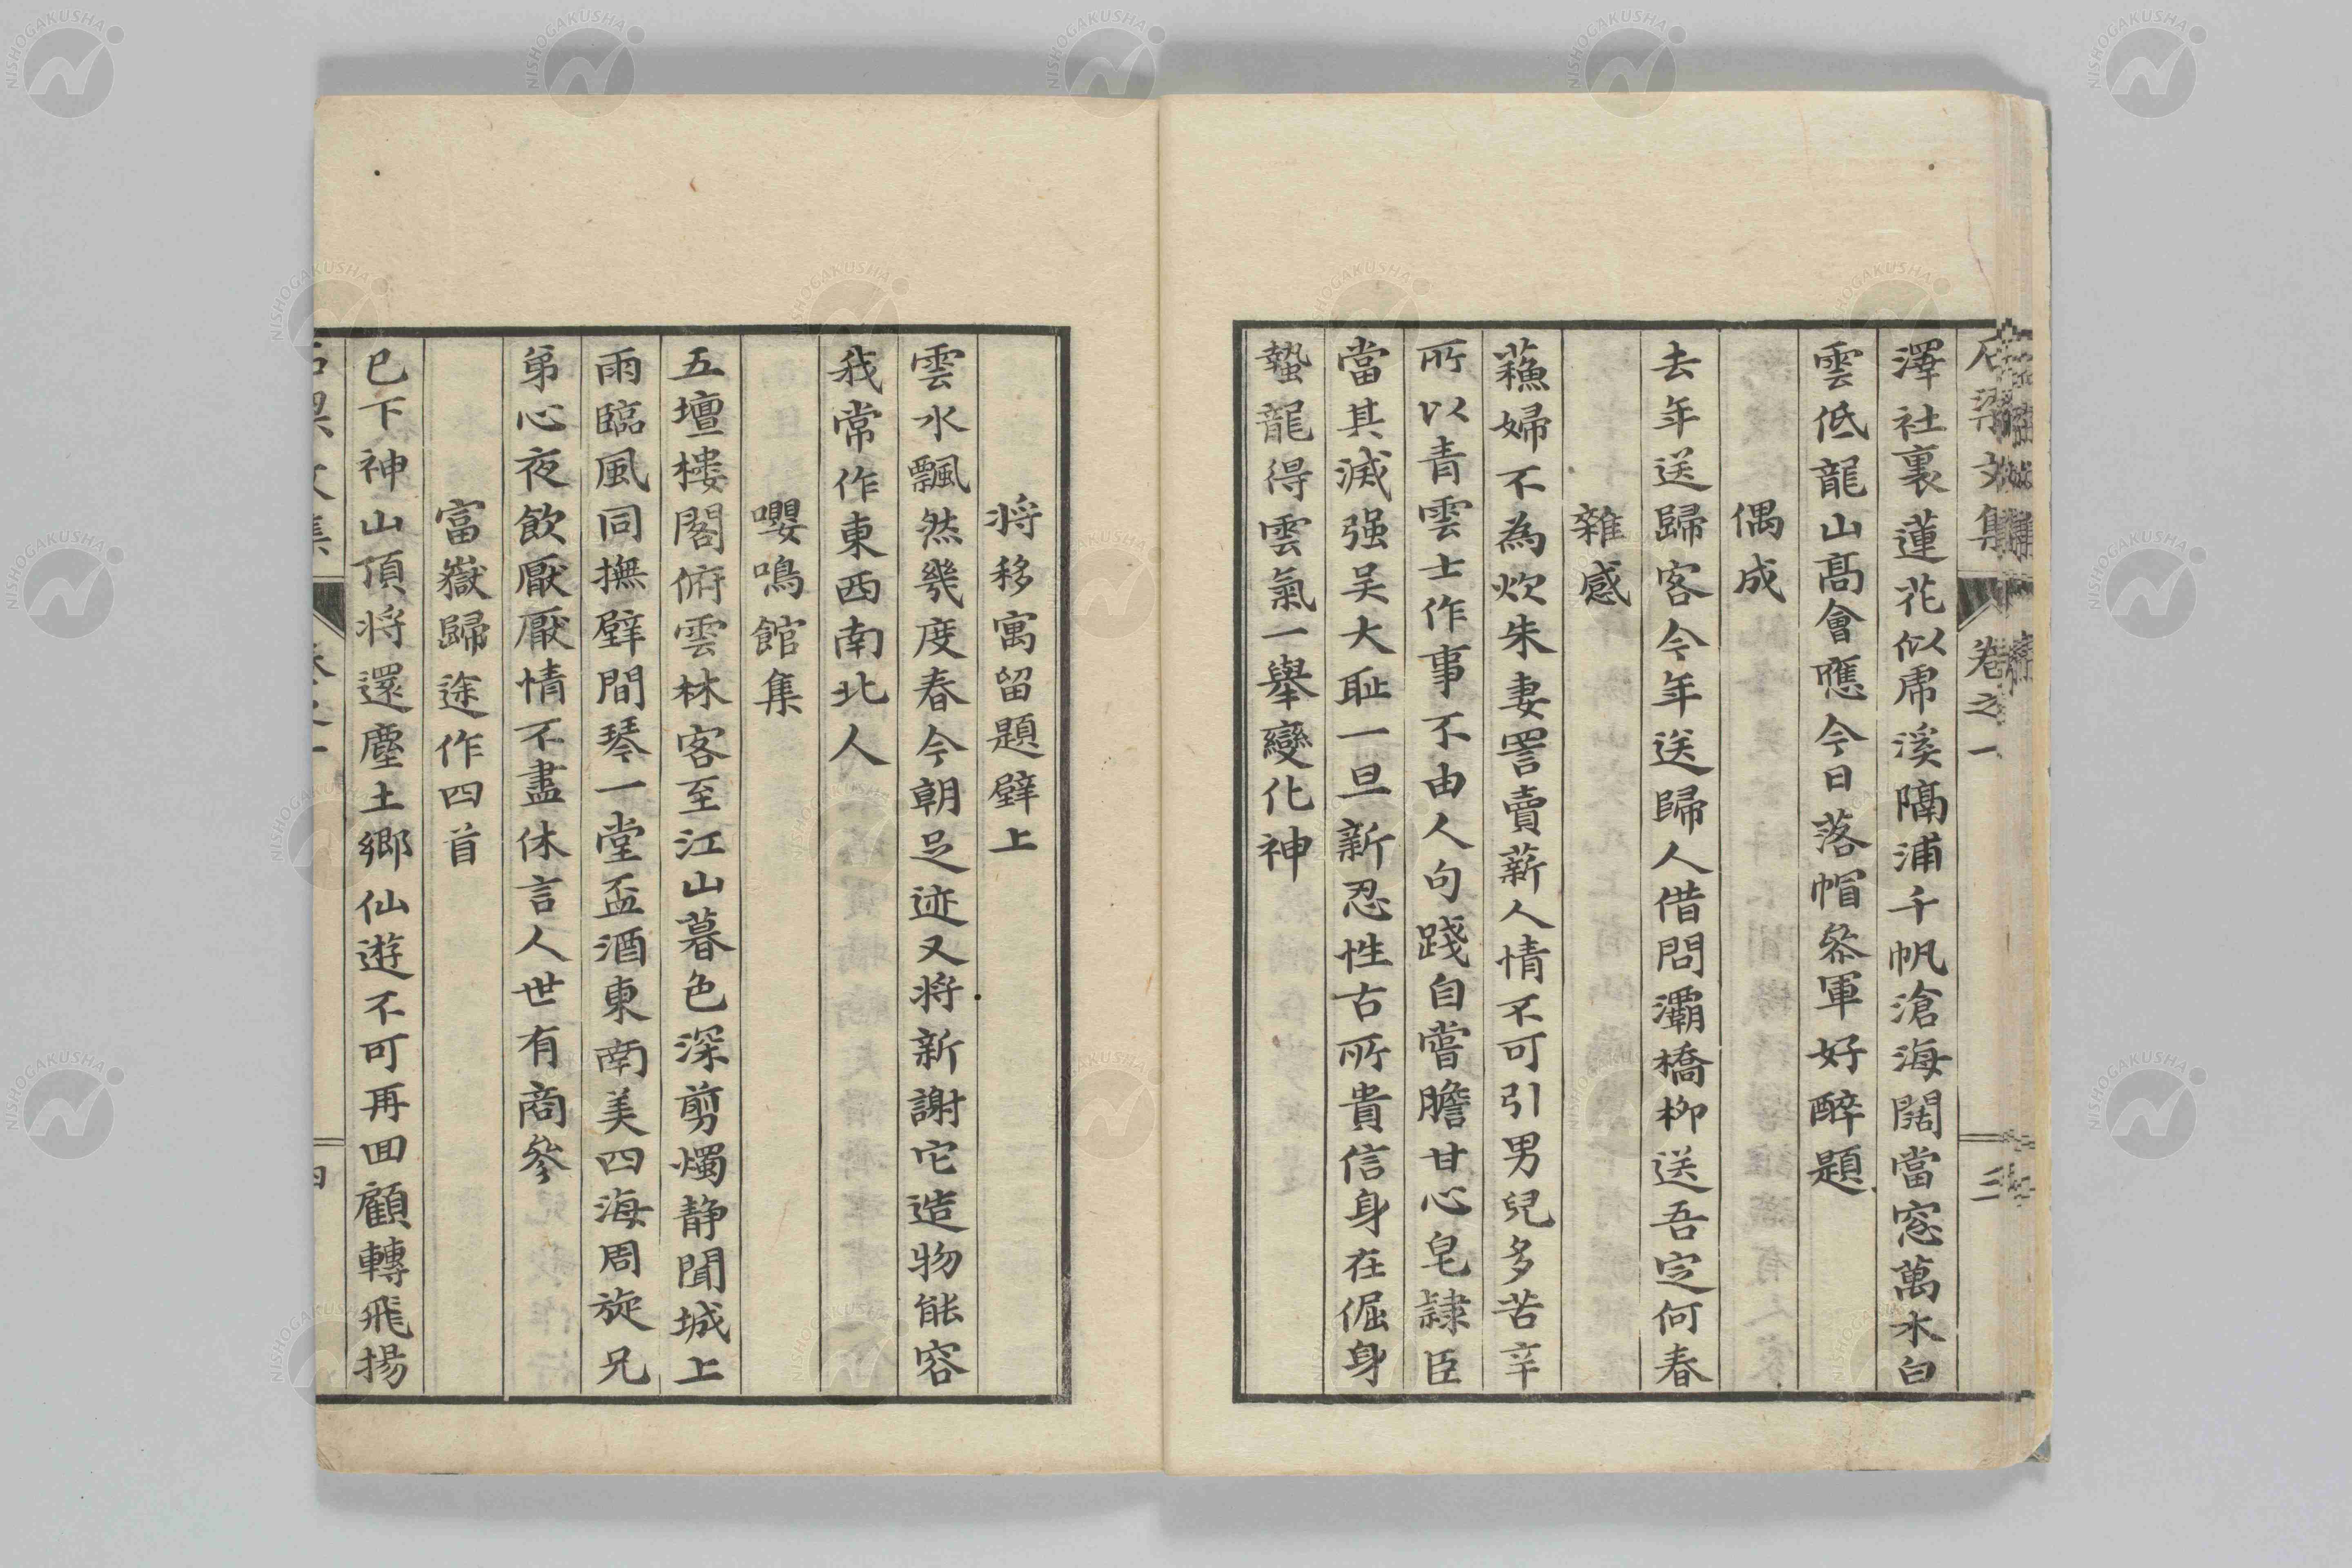 石梁文集 卷之一 三
澤社裏蓮花似虎溪隔浦千帆滄海闊當窓萬木白
雲低龍山髙會應今日落帽叅軍好醉題
偶成
去年送歸客今年送歸人借問灞橋柳送吾定何春
雜感
蘓婦不為炊朱妻詈賣薪人情不可引男兒多苦辛
所以青雲士作事不由人句踐自嘗膽甘心皂隷臣
當其滅强吴大耻一旦新忍性古所貴信身在倔身
蟄龍得雲氣一舉變化神
将移寓留題壁上
雲水飄然幾度春今朝足迹又将新謝它造物能容
我常作東西南北人
嚶鳴館集
五壇樓閣俯雲林客至江山暮色深剪燭静聞城上
雨臨風同撫壁間琴一堂盃酒東南美四海周旋兄
弟心夜飲厭厭情不盡休言人世有商參
富嶽歸途作四首
已下神山頂将還塵土郷仙遊不可再回顧轉飛揚
石梁文集 卷之一 四
NISHOGAKUSHA